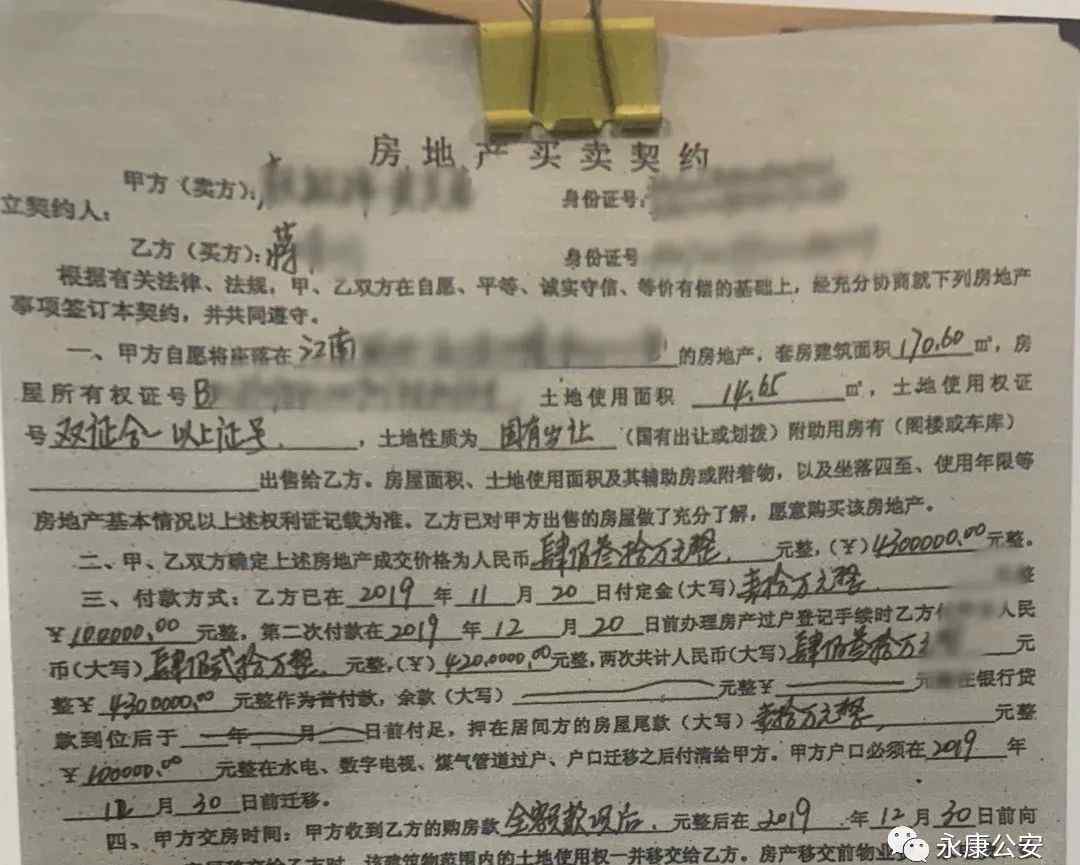 房地产买卖契约
甲方（卖方）： 身份证号：
立契约人：
乙方（买方）：蒋 身份证号
根据有关法律、法规，甲、乙双方在自愿、平等、诚实守信、等价有偿的基础上，经充分协商就下列房地产
事项签订本契约，并共同遵守。
一、甲方自愿将座落在 江南 的房地产，套房建筑面积170.60㎡，房
屋所有权证号B 土地使用面积 14.65 ㎡，土地使用权证
号 双证合一以上证号 ，土地性质为 国有出让 （国有出让或划拨）附助用房有（阁楼或车库）
出售给乙方。房屋面积、土地使用面积及其辅助房或附着物，以及坐落四至、使用年限等
房地产基本情况以上述权利证记载为准。乙方已对甲方出售的房屋做了充分了解，愿意购买该房地产。
二、甲、乙双方确定上述房地产成交价格为人民币肆佰叁拾万元整 元整，（￥）4300000.00元整。
三、付款方式：乙方已在 2019 年 11 月 20 日付定金（大写）壹拾万元整 整
￥100000.00 元整，第二次付款在2019 年 12 月 20 日前办理房产过户登记手续时乙方付 人民
币（大写）肆佰贰拾万整 元整，（￥）4200000.00元整，两次共计人民币（大写）肆佰叁拾万元 元
整￥4300000.00 元整作为首付款，余款（大写） 元整￥ 在银行贷
款到位后于 年 月 日前付足，押在居间方的房屋尾款（大写）壹拾万元整 元整
￥100000.00 元整在水电、数字电视、煤气管道过户、户口迁移之后付清给甲方。甲方户口必须在2019 年
12 月 30 日前迁移。
四、甲方交房时间：甲方收到乙方的购房款 全额款项后 元整后在 2019 年 12 月 30 日前向
该建筑物范围内的土地使用权一并移交给乙方。房产移交前物业
永康公安